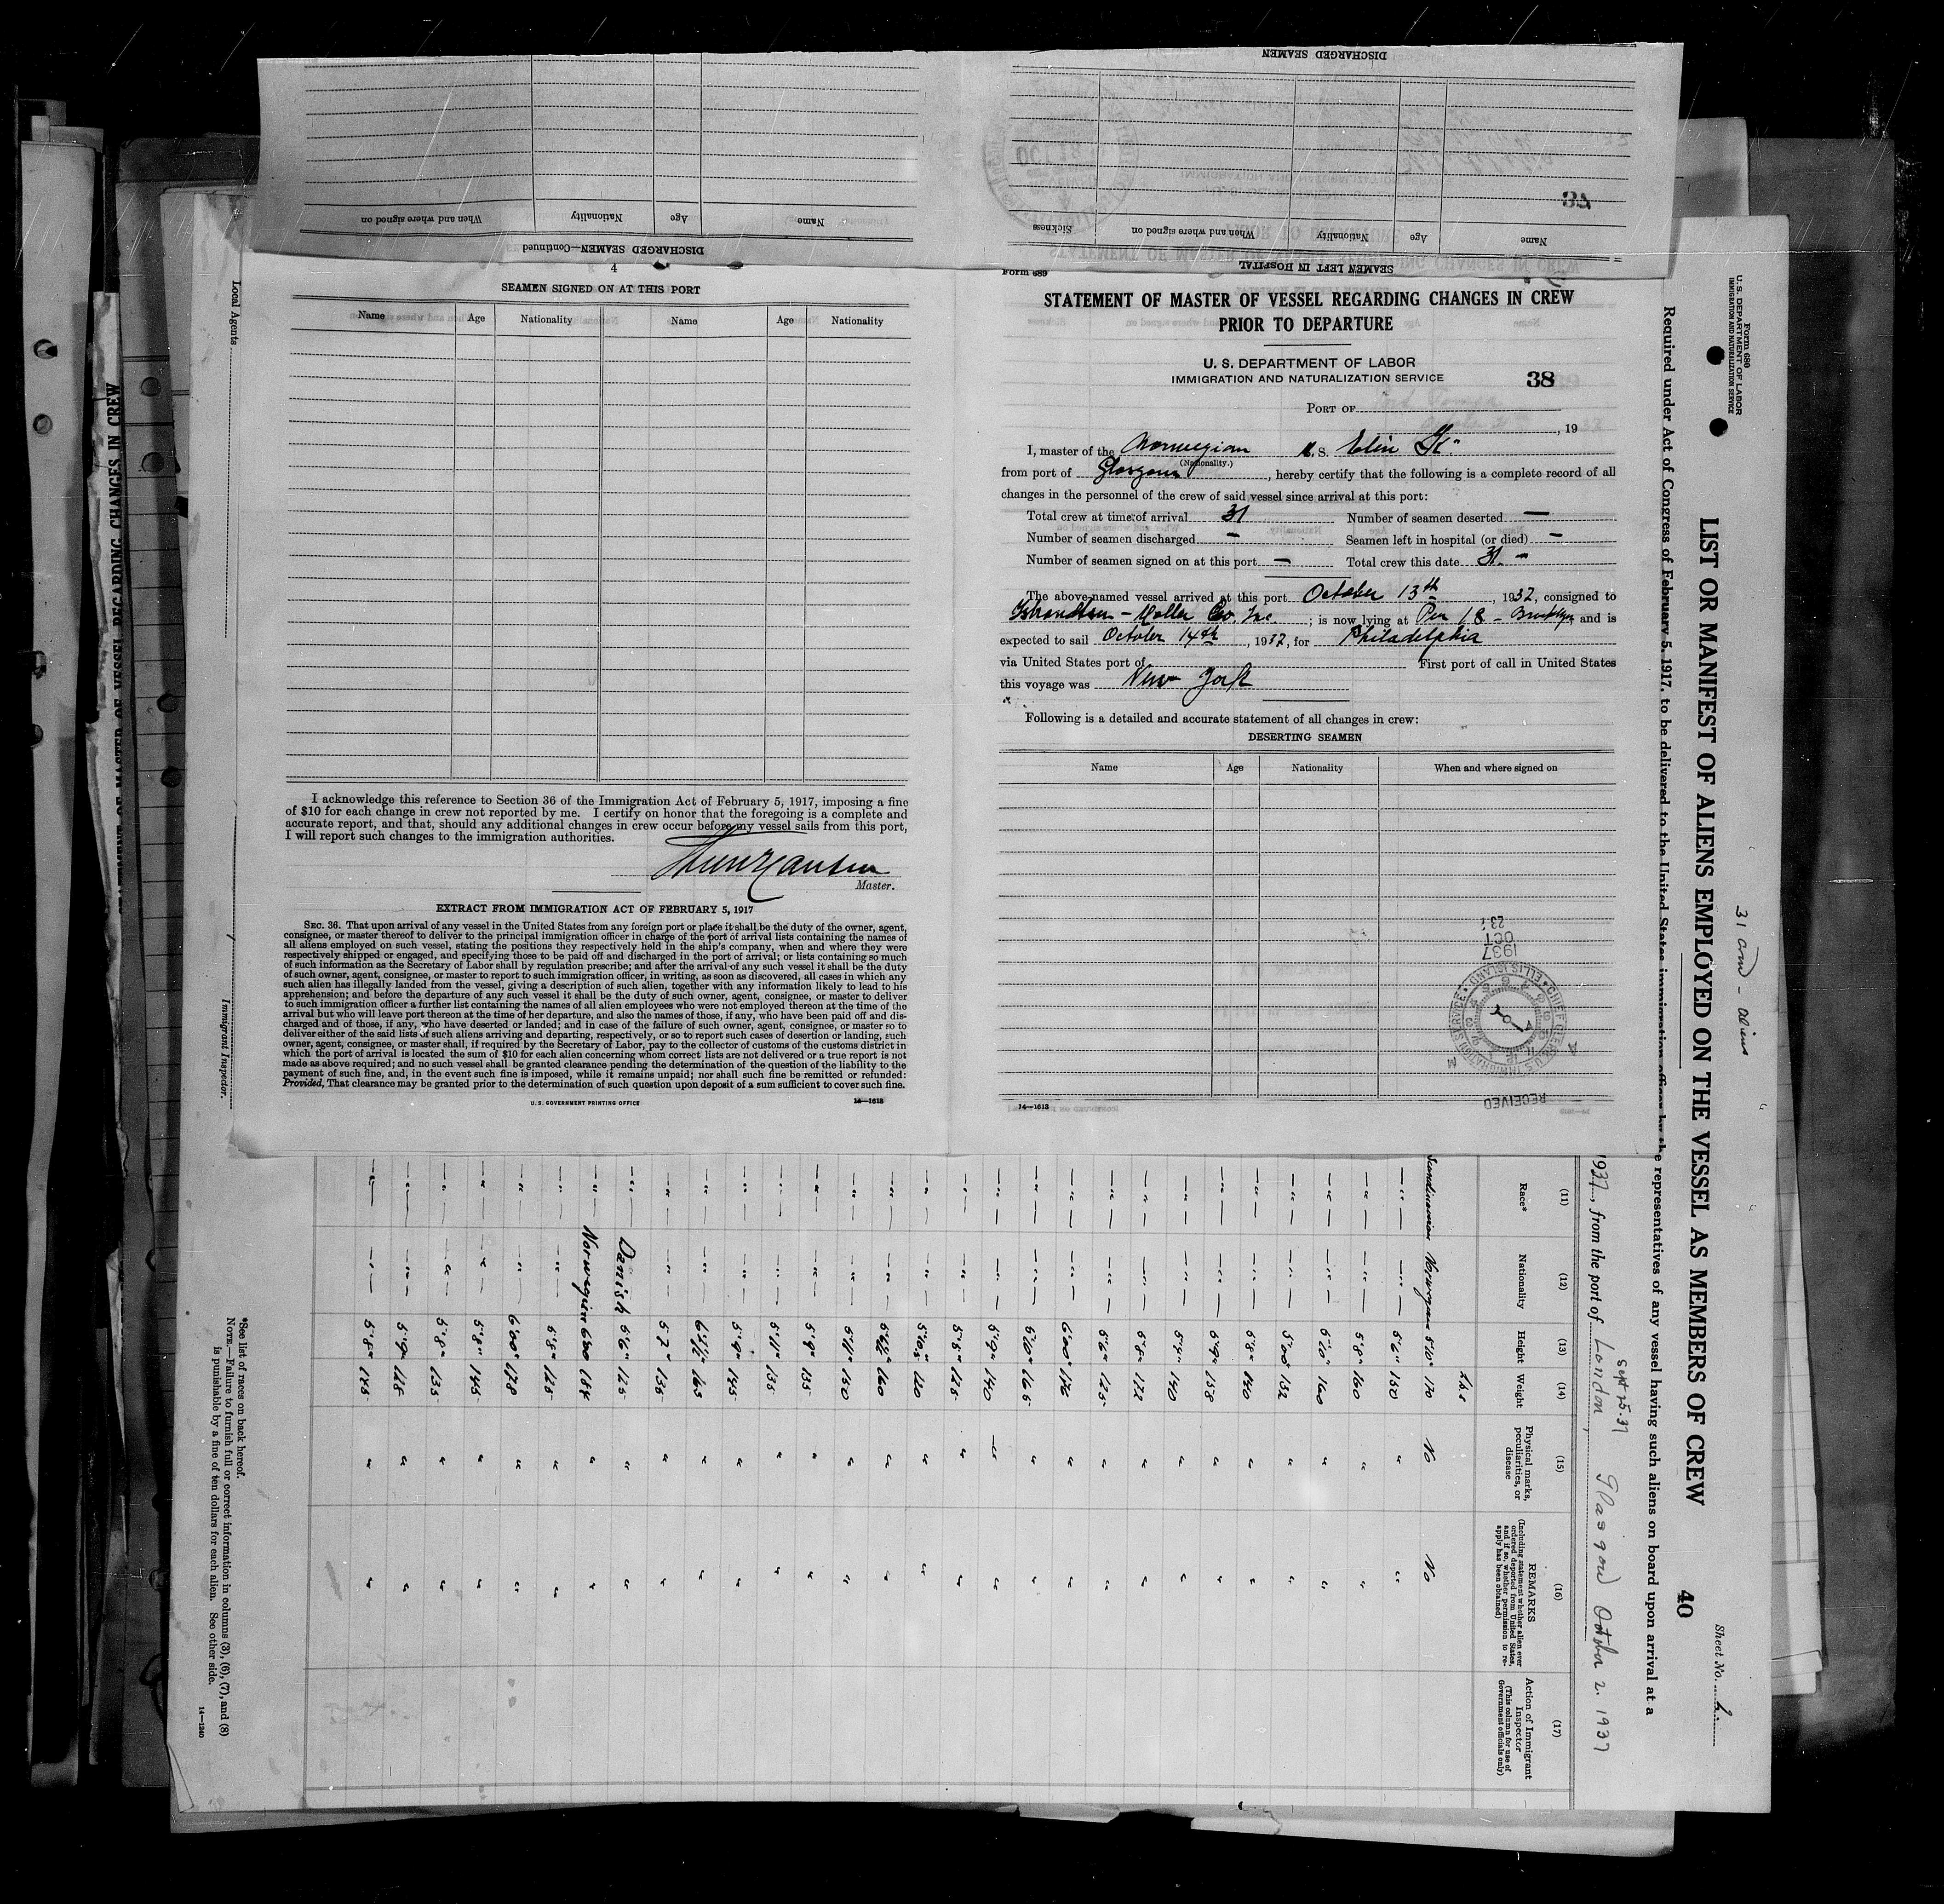 DISCHARGED SEAMEN
Name
Age
Nationality
When and where signed on
DISCHARGED SEAMEN—Continued
Name
Age
Nationality
When and where signed on
Sickness
SEAMEN LEFT IN HOSPITAL
4
SEAMEN SIGNED ON AT THIS PORT
Name Age Nationality Name Age Nationality
I acknowledge this reference to Section 36 of the Immigration Act of February 5, 1917, imposing a fine
of $10 for each change in crew not reported by me. I certify on honor that the foregoing is a complete and
accurate report, and that, should any additional changes in crew occur before my vessel sails from this port,
I will report such changes to the immigration authorities.
Master.
EXTRACT FROM IMMIGRATION ACT OF FEBRUARY 5, 1917
SEC. 36. That upon arrival of any vessel in the United States from any foreign port or place it shall be the duty of the owner, agent,
consignee, or master thereof to deliver to the principal immigration officer in charge of the port of arrival lists containing the names of
all aliens employed on such vessel, stating the positions they respectively held in the ship's company, when and where they were
respectively shipped or engaged, and specifying those to be paid off and discharged in the port of arrival; or lists containing so much
of such information as the Secretary of Labor shall by regulation prescribe; and after the arrival of any such vessel it shall be the duty
of such owner, agent, consignee, or master to report to such immigration officer, in writing, as soon as discovered, all cases in which any
such alien has illegally landed from the vessel, giving a description of such alien, together with any information likely to lead to his
apprehension; and before the departure of any such vessel it shall be the duty of such owner, agent, consignee, or master to deliver
to such immigration officer a further list containing the names of all alien employees who were not employed thereon at the time of the
arrival but who will leave port thereon at the time of her departure, and also the names of those, if any, who have been paid off and dis-
charged and of those, if any, who have deserted or landed; and in case of the failure of such owner, agent, consignee, or master so to
deliver either of the said lists of such aliens arriving and departing, respectively, or so to report such cases of desertion or landing, such
owner, agent, consignee, or master shall, if required by the Secretary of Labor, pay to the collector of customs of the customs district in
which the port of arrival is located the sum of $10 for each alien concerning whom correct lists are not delivered or a true report is not
made as above required; and no such vessel shall be granted clearance pending the determination of the question of the liability to the
payment of such fine, and, in the event such fine is imposed, while it remains unpaid; nor shall such fine be remitted or refunded:
Provided, That clearance may be granted prior to the determination of such question upon deposit of a sum sufficient to cover such fine.
U. S. GOVERNMENT PRINTING OFFICE 14—1613
Form 689
STATEMENT OF MASTER OF VESSEL REGARDING CHANGES IN CREW
PRIOR TO DEPARTURE
U. S. DEPARTMENT OF LABOR
IMMIGRATION AND NATURALIZATION SERVICE
38
PORT OF
, 19
I, master of the Norwegian S. Elin K.
(Nationality.)
from port of Glasgow, hereby certify that the following is a complete record of all
changes in the personnel of the crew of said vessel since arrival at this port:
Total crew at time of arrival 31 Number of seamen deserted —
Number of seamen discharged — Seamen left in hospital (or died) —
Number of seamen signed on at this port — Total crew this date 31 —
The above-named vessel arrived at this port October 13th, 1937, consigned to
Co. Inc.; is now lying at Pier 18 - Brooklyn and is
expected to sail October 14th, 1937, for Philadelphia
via United States port of First port of call in United States
this voyage was New York
Following is a detailed and accurate statement of all changes in crew:
DESERTING SEAMEN
Name Age Nationality When and where signed on
1937
OCT
23
CHIEF OFFICER U.S. IMMIGRATION SERVICE ELLIS ISLAND
RECEIVED
14—1613
Local Agents
Immigrant Inspector.
STATEMENT OF MASTER OF VESSEL REGARDING CHANGES IN CREW
Form 680
U. S. DEPARTMENT OF LABOR
IMMIGRATION AND NATURALIZATION SERVICE
Sheet No.
LIST OR MANIFEST OF ALIENS EMPLOYED ON THE VESSEL AS MEMBERS OF CREW
40
Required under Act of Congress of February 5, 1917, to be delivered to the United States immigration officer by the representatives of any vessel having such aliens on board upon arrival at a
1937, from the port of London, Sept 25.37 Glasgow October 2. 1937
(11) (12) (13) (14) (15) (16) (17)
Race* Nationality Height Weight Physical marks, peculiarities, or disease REMARKS (Including statement whether alien ever ordered deported from United States, and if so, whether permission to re-apply has been obtained) Action of Immigrant Inspector (This column for use of Government officials only)
Lbs
Scandinavian Norwegian 5'10" 170 No No
—"— —"— 5'6" 150 " "
—"— —"— 5'8" 160 " "
—"— —"— 5'10" 160 " "
—"— —"— 132 " "
—"— —"— 5'8" 140 " "
—"— —"— 5'9" 158 " "
—"— —"— 140 " "
—"— —"— 5'8" 172 " "
—"— —"— 5'6" 125 " "
—"— —"— 6'00" 176 " "
—"— —"— 5'10" 165 " "
—"— —"— 5'9" 140 —"— "
—"— —"— 5'8" 125 " "
—"— —"— " "
—"— —"— 160 " "
—"— —"— 5'11" 150 " "
—"— —"— 135 " "
—"— —"— 5'11" 135 " "
—"— —"— 5'9" 145 " "
—"— —"— 165 " "
—"— —"— 5'7" 135 " "
—"— Danish 5'6" 125 " "
—"— Norwegian 6'00 184 " "
—"— —"— 5'8" 125 " "
—"— —"— 6'00" 178 " "
—"— —"— 5'8" 145 " "
—"— —"— 5'8" 135 " "
—"— —"— 5'9" " "
—"— —"— 5'8" 145 " "
*See list of races on back hereof.
NOTE.—Failure to furnish full or correct information in columns (3), (6), (7), and (8)
is punishable by a fine of ten dollars for each alien. See other side.
14—1240